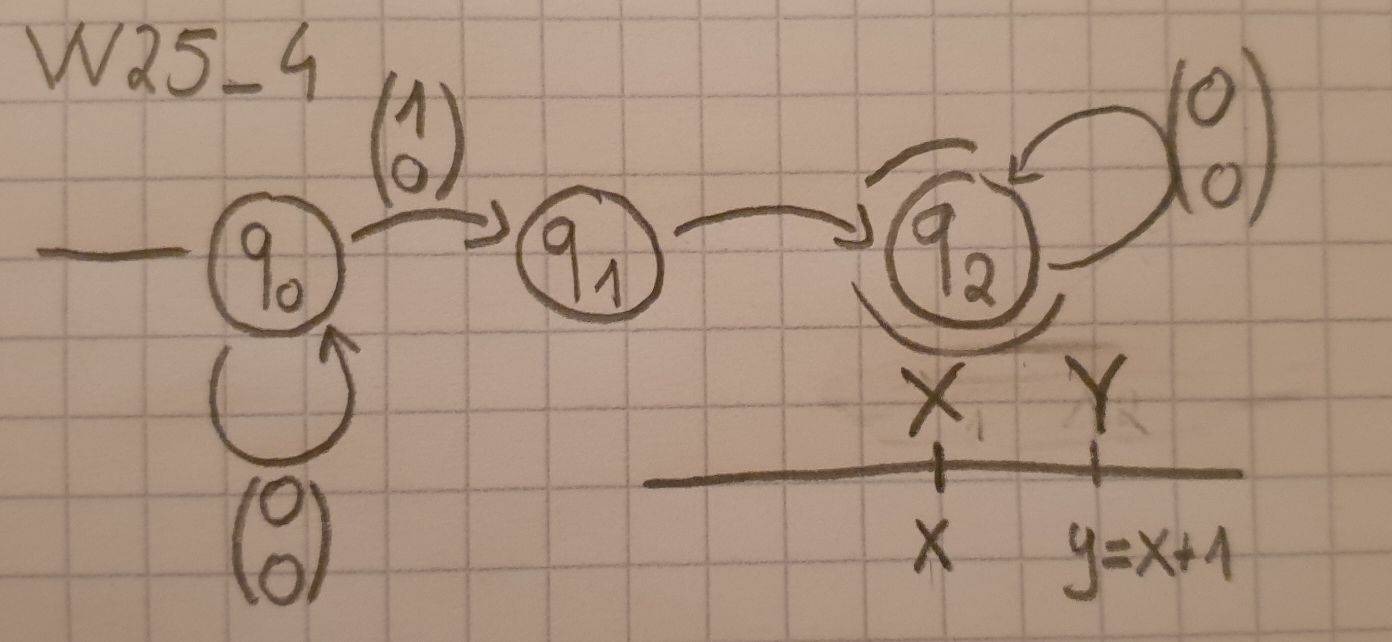 W25_4
(1 0)
(0 0)
q0
q1
q2
(0 0)
X Y
x y=x+1